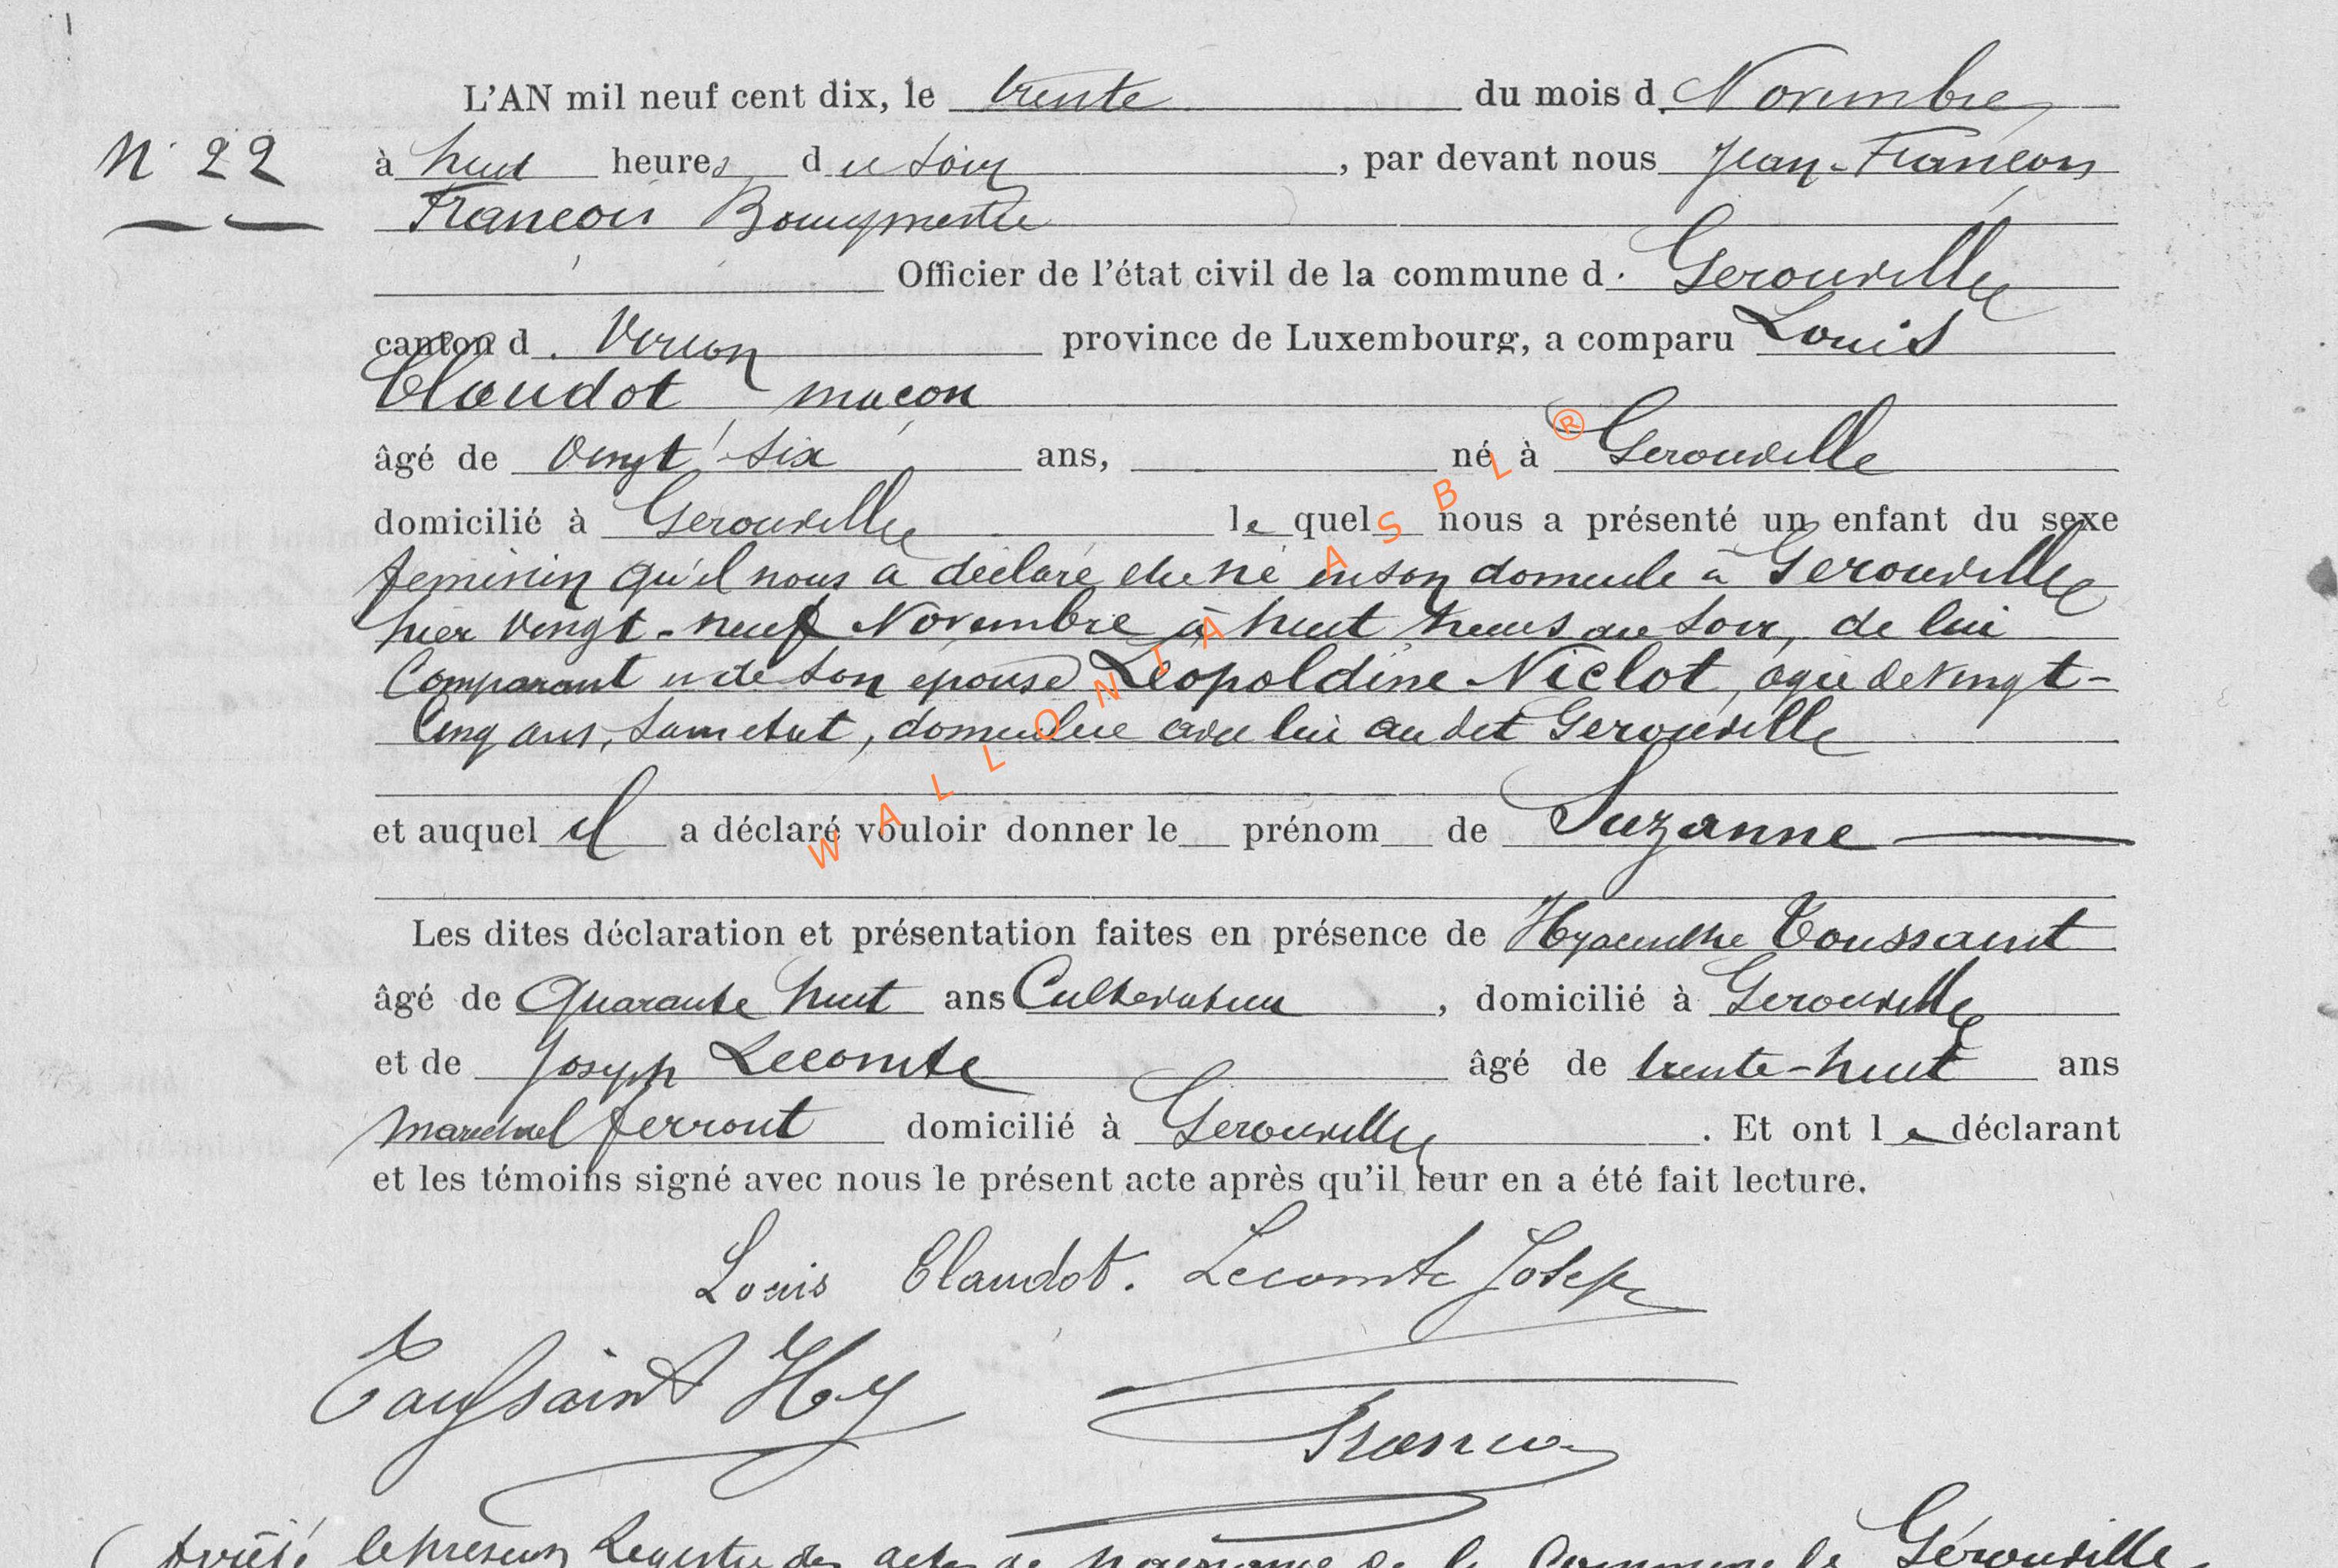 L'AN mil neuf cent dix, le trente du mois d. Novembre
N° 22
à huit heures du soir, par devant nous Jean-François
François Bourgmestre
Officier de l'état civil de la commune d. Gerouville
canton d. Virton province de Luxembourg, a comparu Louis
Claudot maçon
âgé de vingt-six ans, né à Gerouville
domicilié à Gerouville le quel nous a présenté un enfant du sexe
feminin qu'il nous a déclaré être né en son domicile à Gerouville
hier vingt-neuf Novembre à huit heures du soir, de lui
Comparant et de son épouse Léopoldine Niclot, agée de vingt-
cinq ans, sans etat, domiciliée avec lui au dit Gerouville
et auquel il a déclaré vouloir donner le prénom de Suzanne
Les dites déclaration et présentation faites en présence de Hyacinthe Toussaint
âgé de Quarante huit ans Cultivateur, domicilié à Gerouville
et de Joseph Lecomte âgé de trente-huit ans
marechal ferrant domicilié à Gerouville. Et ont le déclarant
et les témoins signé avec nous le présent acte après qu'il leur en a été fait lecture.
Louis Claudot. Lecomte Joseph
Toussaint Hy
Arrêté le présent Registre des actes de naissance de la Commune de Gérouville
WALLONIA ASBL ®